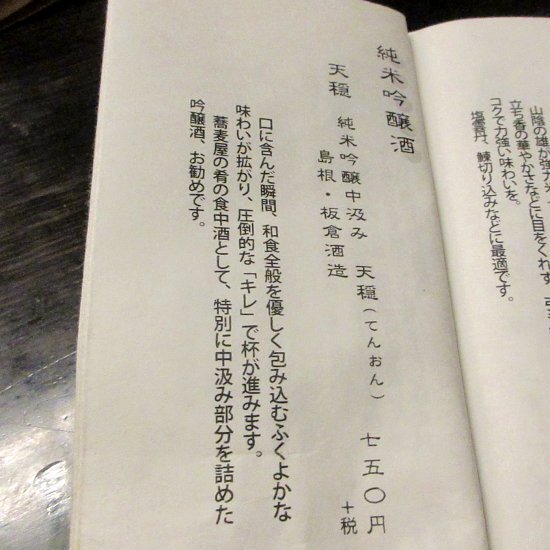 山陰の雄が
立ち香の華やかさなどに目をくれず、
コクで力強い味わいを。
塩雲丹、鰊切り込みなどに最適です。
純米吟醸酒
天穏 純米吟醸中汲み 天穏（てんおん） 七五〇円
島根・板倉酒造 +税
口に含んだ瞬間、和食全般を優しく包み込むふくよかな
味わいが拡がり、圧倒的な「キレ」で杯が進みます。
蕎麦屋の肴の食中酒として、特別に中汲み部分を詰めた
吟醸酒、お勧めです。